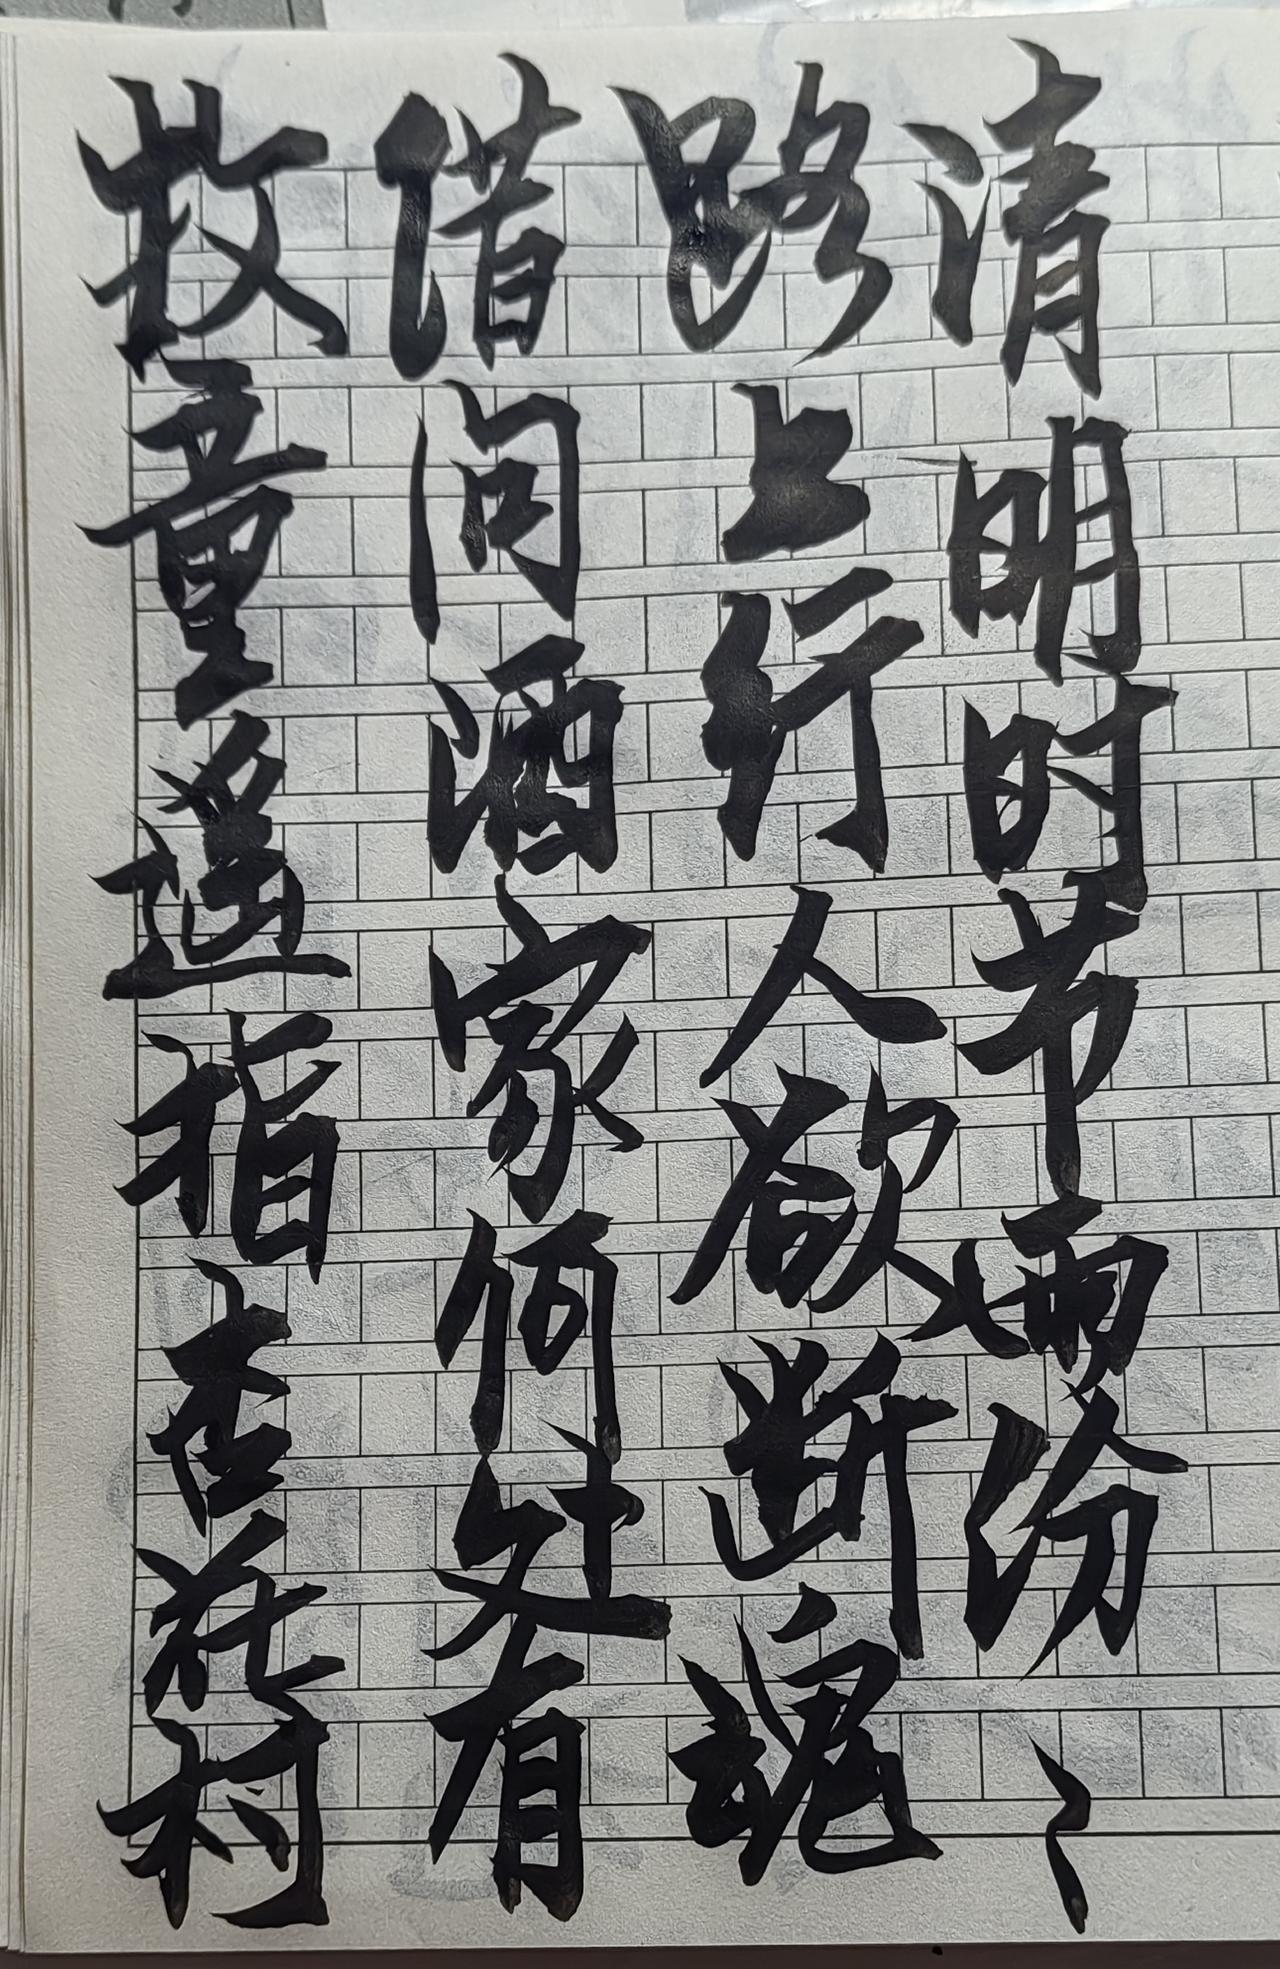 清明时节雨纷〻
路上行人欲断魂
借问酒家何处有
牧童遥指杏花村